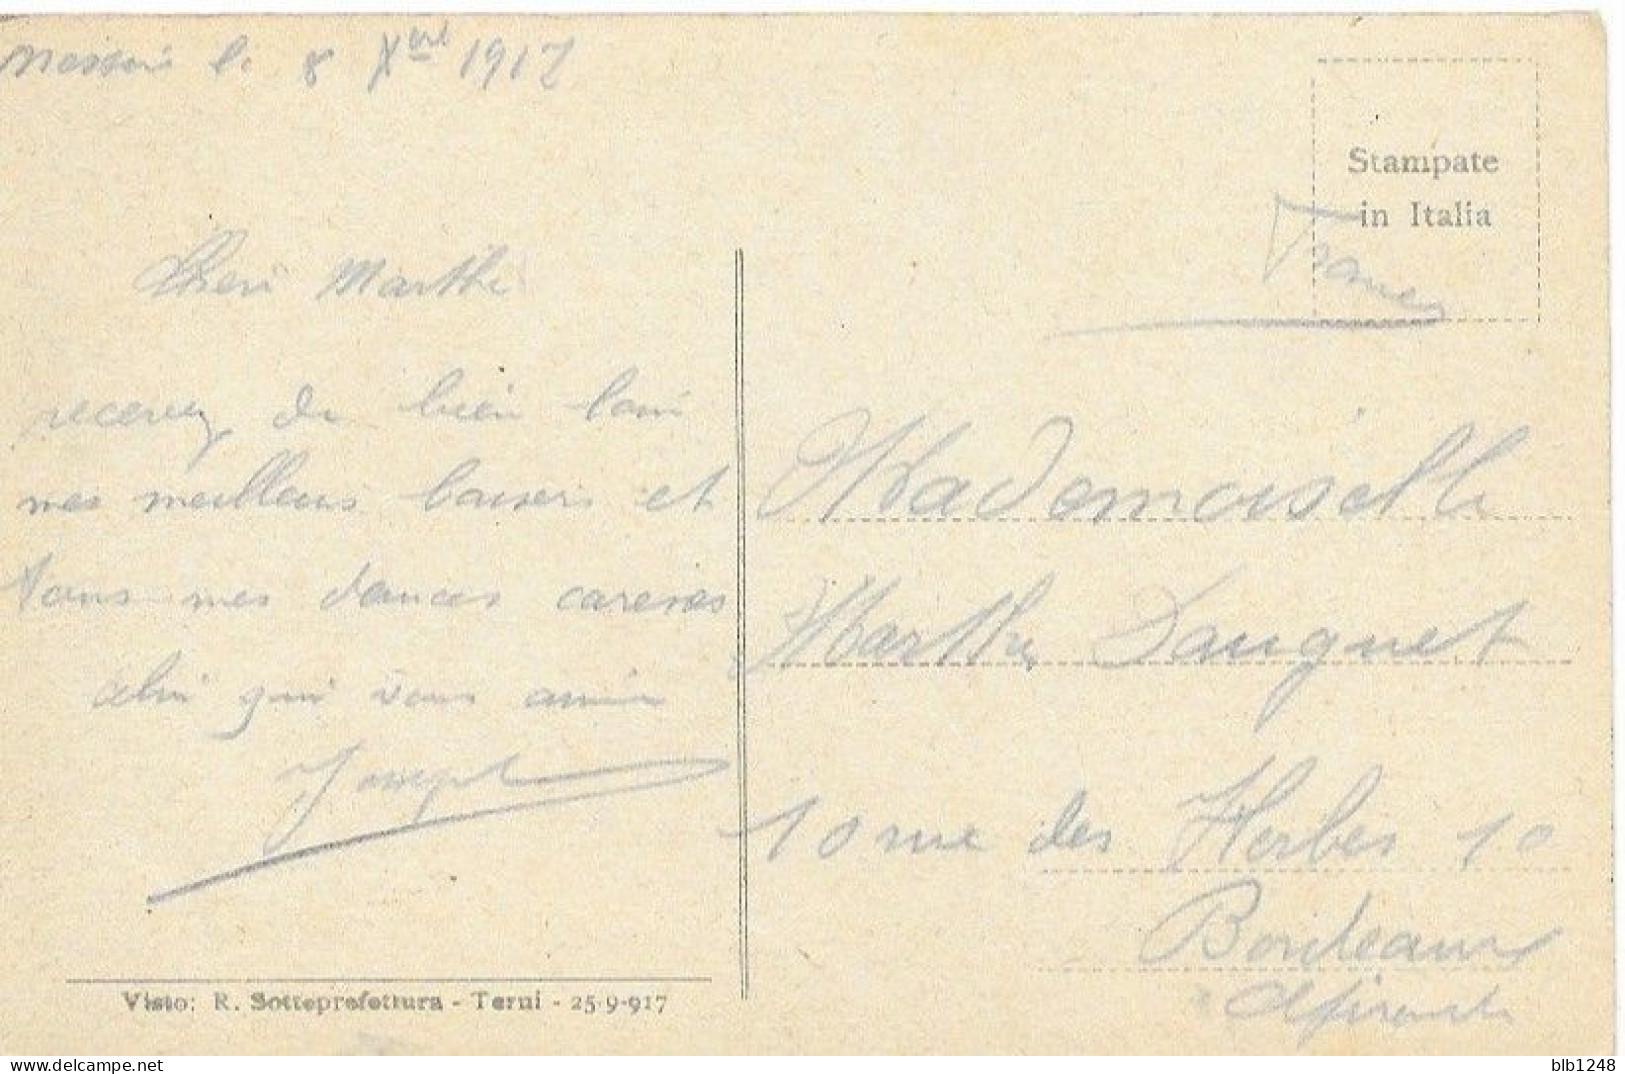 le 8 Xbre 1917
Stampate
in Italia
France
Cheri Marthe
recevez de bien loin
mes meilleurs baisers et
tous mes douces careses
celui qui vous aime
Joseph
Mademoiselle
Marthe Dauguet
10 rue des Herbes 10
Bordeaux
Gironde
Visto: R. Sotteprefettura - Terni - 25-9-917
blb1248